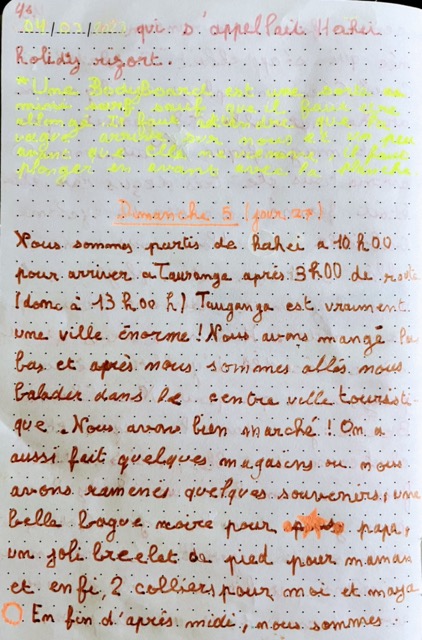 qui s'appellait Hahei
holidy resort.
*Une Bodyboard est une sorte de
mini surf sauf
allongé. Il faut attendre que la
vague arrive
plonger en avant avec la planche
Dimanche 5 (jour 27)
Nous sommes partis de hahei a 10h00
pour arriver a Tauranga après 3h00 de route
(donc à 13h00 h) Tauganga est vraiment
une ville énorme! Nous avons mangé la
bas et après nous sommes allés nous
balader dans le centre ville touristi-
que. Nous avons bien marché! On a
aussi fait quelques magasens ou nous
avons ramenés quelques souvenirs, une
belle bague noire pour papa,
un joli brecelet de pied pour maman
et enfi, 2 colliers pour moi et maya.
En fin d'après midi, nous sommes